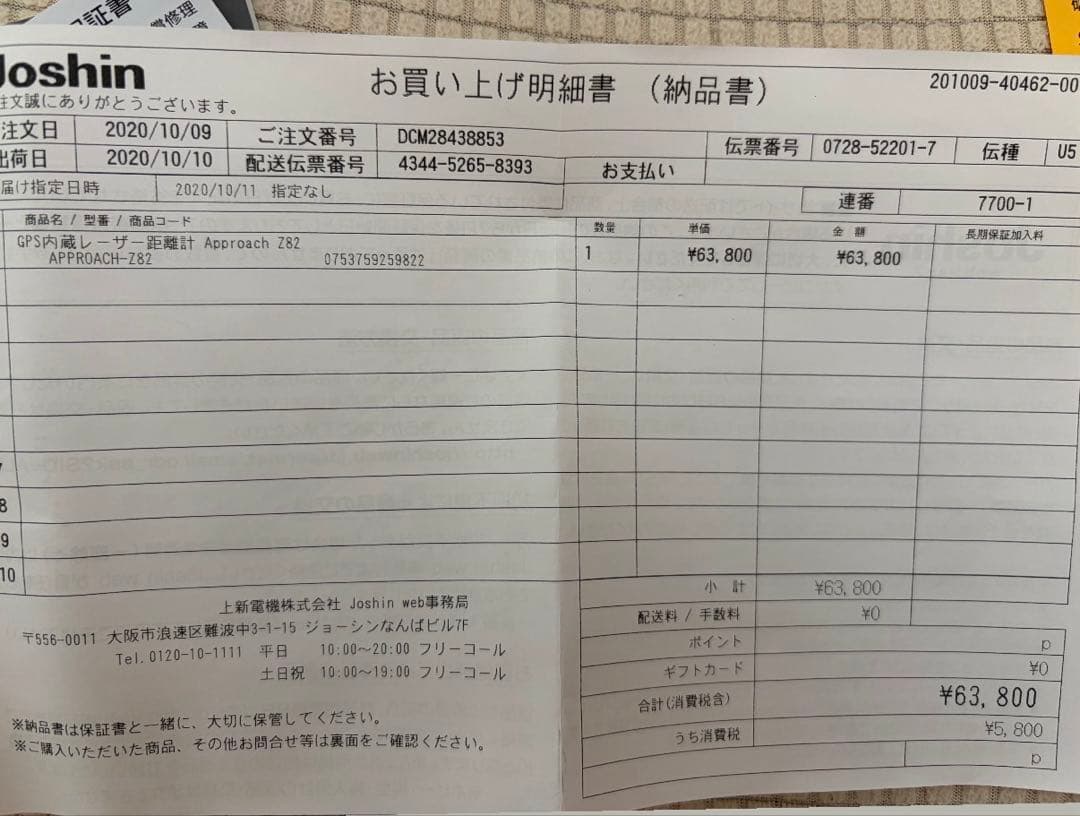 証書
修理
Joshin
お買い上げ明細書 (納品書)
201009-40462-00
注文誠にありがとうございます。
注文日 2020/10/09 ご注文番号 DCM28438853 伝票番号 0728-52201-7 伝種 U5
出荷日 2020/10/10 配送伝票番号 4344-5265-8393 お支払い
届け指定日時 2020/10/11 指定なし 連番 7700-1
商品名 / 型番 / 商品コード 数量 単価 金額 長期保証加入料
GPS内蔵レーザー距離計 Approach Z82 1 ¥63,800 ¥63,800
APPROACH-Z82 0753759259822
7
8
9
10
小計 ¥63,800
配送料 / 手数料 ¥0
ポイント p
ギフトカード ¥0
合計(消費税含) ¥63,800
うち消費税 ¥5,800
p
上新電機株式会社 Joshin web事務局
〒556-0011 大阪市浪速区難波中3-1-15 ジョーシンなんばビル7F
Tel.0120-10-1111 平日 10:00～20:00 フリーコール
土日祝 10:00～19:00 フリーコール
※納品書は保証書と一緒に、大切に保管してください。
※ご購入いただいた商品、その他お問合せ等は裏面をご確認ください。